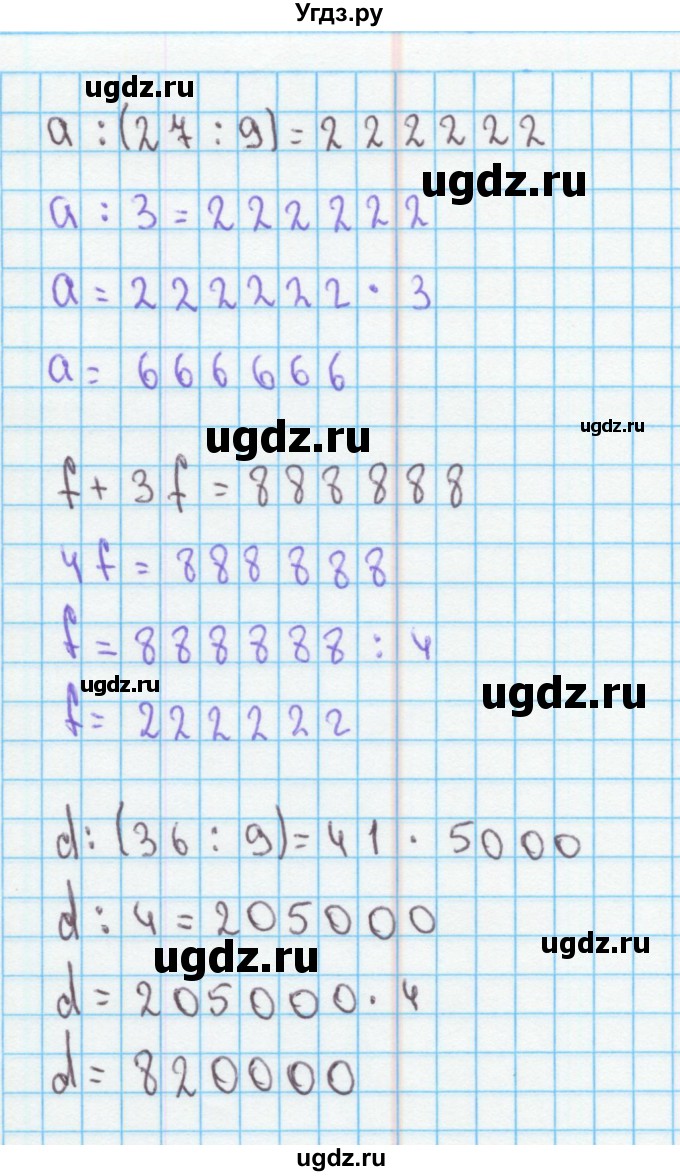 Угдз.ру
ugdz.ru
a : (27 : 9) = 222222
ugdz.ru
a : 3 = 222222
a = 222222 · 3
a = 666666
ugdz.ru
ugdz.ru
f + 3f = 888888
4f = 888888
f = 888888 : 4
ugdz.ru
ugdz.ru
f = 222222
d : (36 : 9) = 41 · 5000
d : 4 = 205000
ugdz.ru
ugdz.ru
d = 205000 · 4
d = 820000
ugdz.ru